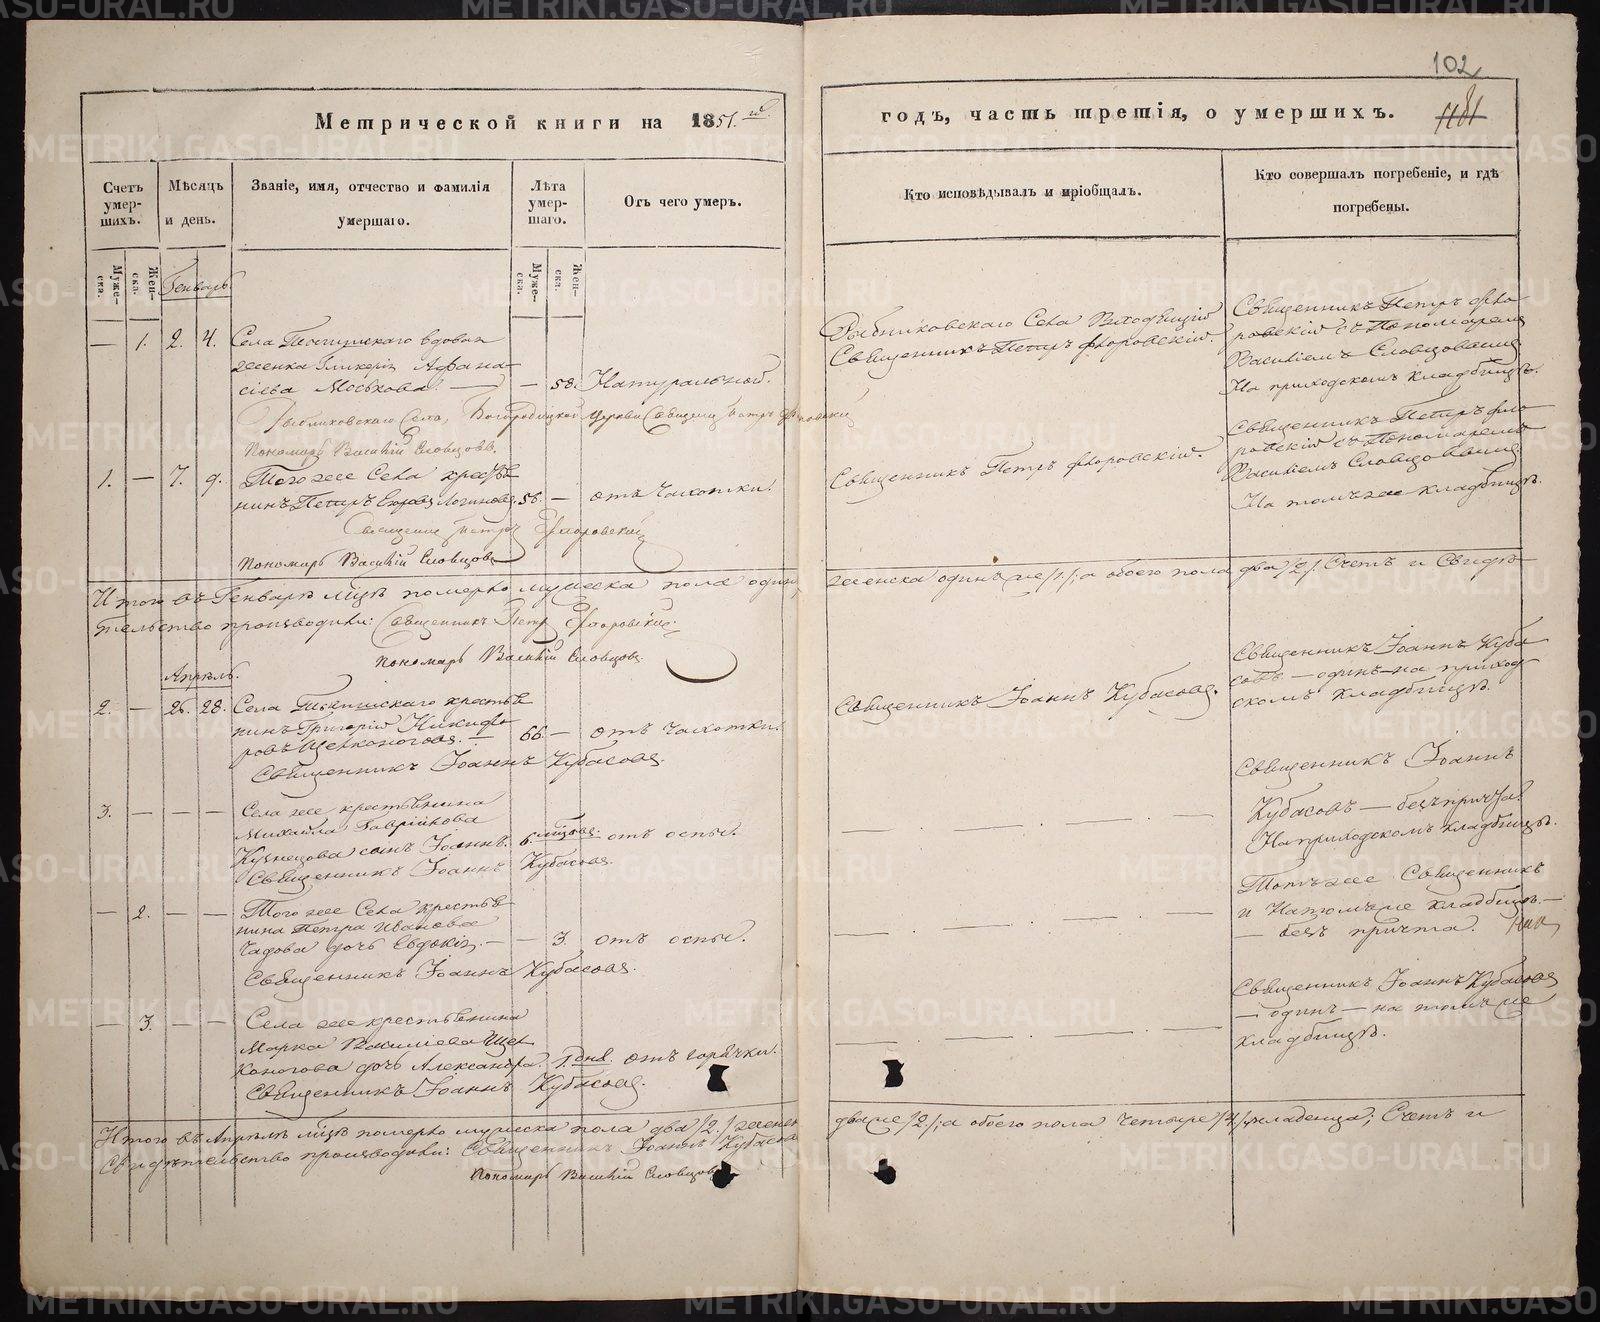 102
Метрической книги на 1851.й
годъ, часть третія, о умершихъ.
Счетъ умер-шихъ.
Мѣсяцъ и день.
Званіе, имя, отчество и фамилія умершаго.
Лѣта умер-шаго.
Отъ чего умеръ.
Кто исповѣдывалъ и пріобщалъ.
Кто совершалъ погребеніе, и гдѣ погребены.
Муже-ска.
Жен-ска.
Муже-ска.
Жен-ска.
Генварь.
— 1. 2. 4. Села вдовая
женка Гликерія Афана-
сіева Моськова — — 58. Натуральной.
Рыбниковскаго Села
Священникъ Петръ Флоровскій.
Священникъ Петръ Фло-
ровскій съ Пономаремъ
Василіемъ Словцовымъ
На приходскомъ кладбищѣ.
Рыбниковскаго Села, Богородицкой церкви Священ. Петръ Флоровскій
Пономарь Василій Словцовъ.
1. — 7. 9. Того же Села крестья-
нинъ Петръ Логиновъ. 56. — отъ Чахотки.
Священникъ Петръ Флоровскій.
Священникъ Петръ Фло-
ровскій съ Пономаремъ
Василіемъ Словцовымъ
На томъ же кладбищѣ.
Священникъ Петръ Флоровскій
Пономарь Василій Словцовъ
Итого въ Генварѣ м͠цѣ померло мужеска пола одинъ,
женска одинъ же /1/, а обоего пола два /2/. Счетъ и Свидѣ-
тельство производили: Священникъ Петръ Флоровскій.
Пономарь Василій Словцовъ.
Апрѣль.
2. — 26. 28. Села крестья-
нинъ Григорій Никифо-
ровъ Щелконоговъ. — 66 — отъ Чахотки.
Священникъ Іоаннъ Кубасовъ.
Священникъ Іоаннъ Куба-
совъ — одинъ — на приход-
скомъ кладбищѣ.
Священникъ Іоаннъ Кубасовъ.
3. — — — Села же крестьянина
Михаила Гаврилова
Кузнецова сынъ Іоаннъ. 6. м͠цовъ. отъ оспы.
Священникъ Іоаннъ Кубасовъ.
Священникъ Іоаннъ
Кубасовъ — безъ причта.
На приходскомъ кладбищѣ.
— 2. — — Того же Села крестья-
нина Петра Иванова
Чадова дочь Евдокія. — — 3. отъ оспы.
Священникъ Іоаннъ Кубасовъ.
Тотъ же Священникъ
и на томъ же кладбищѣ —
— безъ причта.
— 3. — — Села же крестьянина
Марка Василіева Щел-
коногова дочь Александра. 1. дня. отъ горячки.
Священникъ Іоаннъ Кубасовъ.
Священникъ Іоаннъ Кубасовъ
— одинъ — на томъ же
кладбищѣ.
Итого въ Апрѣлѣ м͠цѣ померло мужеска пола два /2./ женска
два же /2/, а обоего пола четыре /4/ младенца; Счетъ и
Свидѣтельство производили: Священникъ Іоаннъ Кубасовъ
Пономарь Василій Словцовъ